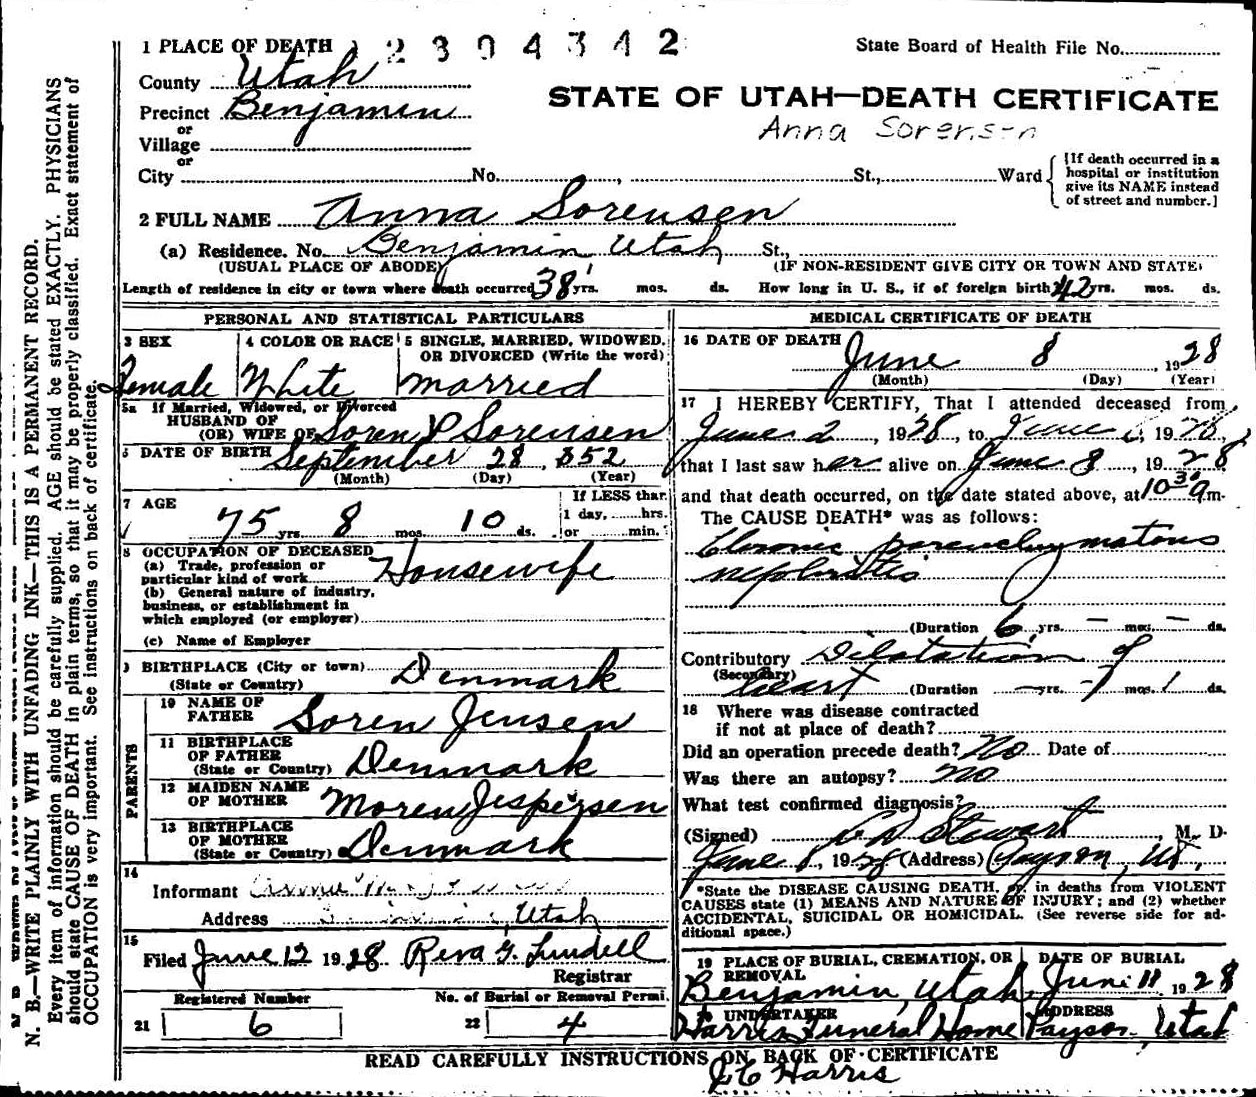 1 PLACE OF DEATH 2304342 State Board of Health File No.
County Utah
Precinct Benjamin STATE OF UTAH—DEATH CERTIFICATE
or
Village Anna Sorensen
or
City No. , St., Ward
[If death occurred in a
hospital or institution
give its NAME instead
of street and number.]
2 FULL NAME Anna Sorensen
(a) Residence. No. Benjamin Utah St.,
(USUAL PLACE OF ABODE) (IF NON-RESIDENT GIVE CITY OR TOWN AND STATE)
Length of residence in city or town where death occurred 38 yrs. mos. ds. How long in U. S., if of foreign birth 42 yrs. mos. ds.
PERSONAL AND STATISTICAL PARTICULARS
3 SEX 4 COLOR OR RACE 5 SINGLE, MARRIED, WIDOWED,
OR DIVORCED (Write the word)
Female White married
5a If Married, Widowed, or Divorced
HUSBAND OF
(OR) WIFE OF Soren P Sorensen
6 DATE OF BIRTH September 28, 1852
(Month) (Day) (Year)
7 AGE If LESS than
1 day, hrs.
75 yrs 8 mos. 10 ds. or min.
8 OCCUPATION OF DECEASED
(a) Trade, profession or
particular kind of work Housewife
(b) General nature of industry,
business, or establishment in
which employed (or employer)
(c) Name of Employer
9 BIRTHPLACE (City or town) Denmark
(State or Country)
PARENTS
10 NAME OF
FATHER Soren Jensen
11 BIRTHPLACE
OF FATHER
(State or Country) Denmark
12 MAIDEN NAME
OF MOTHER Moren Jespersen
13 BIRTHPLACE
OF MOTHER
(State or Country) Denmark
14
Informant
Address Utah
15
Filed June 12 1928 Reva G. Lundell
Registrar
Registered Number No. of Burial or Removal Permi.
21 6 22 4
MEDICAL CERTIFICATE OF DEATH
16 DATE OF DEATH
June 8, 1928
(Month) (Day) (Year)
17 I HEREBY CERTIFY, That I attended deceased from
June 2, 1928, to June , 1928,
that I last saw her alive on June 8, 1928
and that death occurred, on the date stated above, at 10 30 a m.
The CAUSE DEATH* was as follows:
Chronic parenchymatous
nephritis
(Duration 6 yrs. – mos. – ds.
Contributory Dilatation of
(Secondary)
heart (Duration – yrs. mos. 1 ds.
18 Where was disease contracted
if not at place of death?
Did an operation precede death? No Date of
Was there an autopsy? no
What test confirmed diagnosis?
(Signed) Stewart, M. D.
June 8, 1928 (Address) Payson, Ut.
*State the DISEASE CAUSING DEATH, or, in deaths from VIOLENT
CAUSES state (1) MEANS AND NATURE OF INJURY; and (2) whether
ACCIDENTAL, SUICIDAL OR HOMICIDAL. (See reverse side for ad-
ditional space.)
19 PLACE OF BURIAL, CREMATION, OR DATE OF BURIAL
REMOVAL
Benjamin, Utah June 11 1928
20 UNDERTAKER ADDRESS
Harris Funeral Home Payson Utah
READ CAREFULLY INSTRUCTIONS ON BACK OF CERTIFICATE
J C Harris
N. B.—WRITE PLAINLY WITH UNFADING INK—THIS IS A PERMANENT RECORD.
Every item of information should be carefully supplied. AGE should be stated EXACTLY. PHYSICIANS
should state CAUSE OF DEATH in plain terms, so that it may be properly classified. Exact statement of
OCCUPATION is very important. See instructions on back of certificate.